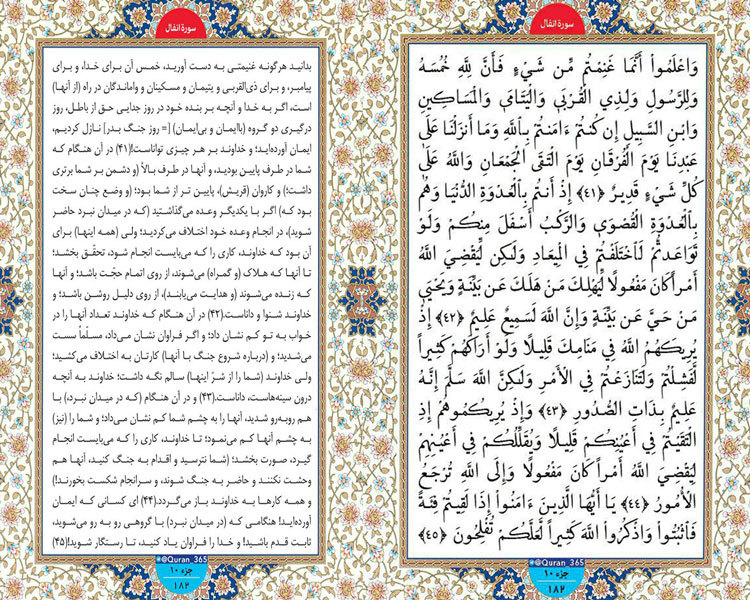 سورة انفال
وَاعْلَمُواْ أَنَّمَا غَنِمْتُم مِّن شَيْءٍ فَأَنَّ لِلَّهِ خُمُسَهُ
وَلِلرَّسُولِ وَلِذِي الْقُرْبَى وَالْيَتَامَى وَالْمَسَاكِينِ
وَابْنِ السَّبِيلِ إِن كُنتُمْ ءَامَنتُم بِاللَّهِ وَمَا أَنزَلْنَا عَلَى
عَبْدِنَا يَوْمَ الْفُرْقَانِ يَوْمَ الْتَقَى الْجَمْعَانِ وَاللَّهُ عَلَى
كُلِّ شَيْءٍ قَدِيرٌ ﴿٤١﴾ إِذْ أَنتُم بِالْعُدْوَةِ الدُّنْيَا وَهُم
بِالْعُدْوَةِ الْقُصْوَى وَالرَّكْبُ أَسْفَلَ مِنكُمْ وَلَوْ
تَوَاعَدتُّمْ لَاخْتَلَفْتُمْ فِي الْمِيعَادِ وَلَكِن لِّيَقْضِيَ اللَّهُ
أَمْراً كَانَ مَفْعُولًا لِّيَهْلِكَ مَنْ هَلَكَ عَن بَيِّنَةٍ وَيَحْيَى
مَنْ حَيَّ عَن بَيِّنَةٍ وَإِنَّ اللَّهَ لَسَمِيعٌ عَلِيمٌ ﴿٤٢﴾ إِذْ
يُرِيكَهُمُ اللَّهُ فِي مَنَامِكَ قَلِيلًا وَلَوْ أَرَاكَهُمْ كَثِيراً
لَّفَشِلْتُمْ وَلَتَنَازَعْتُمْ فِي الْأَمْرِ وَلَكِنَّ اللَّهَ سَلَّمَ إِنَّهُ
عَلِيمٌ بِذَاتِ الصُّدُورِ ﴿٤٣﴾ وَإِذْ يُرِيكُمُوهُمْ إِذِ
الْتَقَيْتُمْ فِي أَعْيُنِكُمْ قَلِيلًا وَيُقَلِّلُكُمْ فِي أَعْيُنِهِمْ
لِيَقْضِيَ اللَّهُ أَمْراً كَانَ مَفْعُولًا وَإِلَى اللَّهِ تُرْجَعُ
الْأُمُورُ ﴿٤٤﴾ يَا أَيُّهَا الَّذِينَ ءَامَنُواْ إِذَا لَقِيتُمْ فِئَةً
فَاثْبُتُواْ وَاذْكُرُواْ اللَّهَ كَثِيراً لَّعَلَّكُمْ تُفْلِحُونَ ﴿٤٥﴾
@Quran_365
جزء ۱۰
۱۸۲
سورة انفال
بدانید هرگونه غنیمتی به دست آورید، خمس آن برای خدا و برای
پیامبر، و برای ذی‌القربی و یتیمان و مسکینان و واماندگان در راه (از آنها)
است، اگر به خدا و آنچه بر بنده خود در روز جدایی حق از باطل، روز
درگیری دو گروه (باایمان و بی‌ایمان) [= روز جنگ بدر] نازل کردیم،
ایمان آورده‌اید؛ و خداوند بر هر چیزی تواناست!(۴۱) در آن هنگام که
شما در طرف پایین بودید، و آنها در طرف بالا (و دشمن بر شما برتری
داشت؛) و کاروان (قریش)، پایین تر از شما بود؛ (و وضع چنان سخت
بود که) اگر با یکدیگر وعده می‌گذاشتید (که در میدان نبرد حاضر
شوید)، در انجام وعده خود اختلاف می‌کردید؛ ولی (همه اینها) برای
آن بود که خداوند، کاری را که می‌بایست انجام شود، تحقّق بخشد؛
تا آنها که هلاک (و گمراه) می‌شوند، از روی اتمام حجّت باشد؛ و آنها
که زنده می‌شوند (و هدایت می‌یابند)، از روی دلیل روشن باشد؛ و
خداوند شنوا و داناست.(۴۲) در آن هنگام که خداوند تعداد آنها را در
خواب به تو کم نشان داد؛ و اگر فراوان نشان می‌داد، مسلّماً سست
می‌شدید؛ و (درباره شروع جنگ با آنها) کارتان به اختلاف می‌کشید؛
ولی خداوند (شما را از شرّ اینها) سالم نگه داشت؛ خداوند به آنچه
درون سینه‌هاست، داناست.(۴۳) و در آن هنگام (که در میدان نبرد،) با
هم روبه‌رو شدید، آنها را به چشم شما کم نشان می‌داد؛ و شما را (نیز)
به چشم آنها کم می‌نمود؛ تا خداوند، کاری را که می‌بایست انجام
گیرد، صورت بخشد؛ (شما نترسید و اقدام به جنگ کنید، آنها هم
وحشت نکنند و حاضر به جنگ شوند، و سرانجام شکست بخورند!)
و همه کارها به خداوند باز می‌گردد.(۴۴) ای کسانی که ایمان
آورده‌اید! هنگامی که (در میدان نبرد) با گروهی رو به رو می‌شوید،
ثابت قدم باشید! و خدا را فراوان یاد کنید، تا رستگار شوید!(۴۵)
@Quran_365
جزء ۱۰
۱۸۲